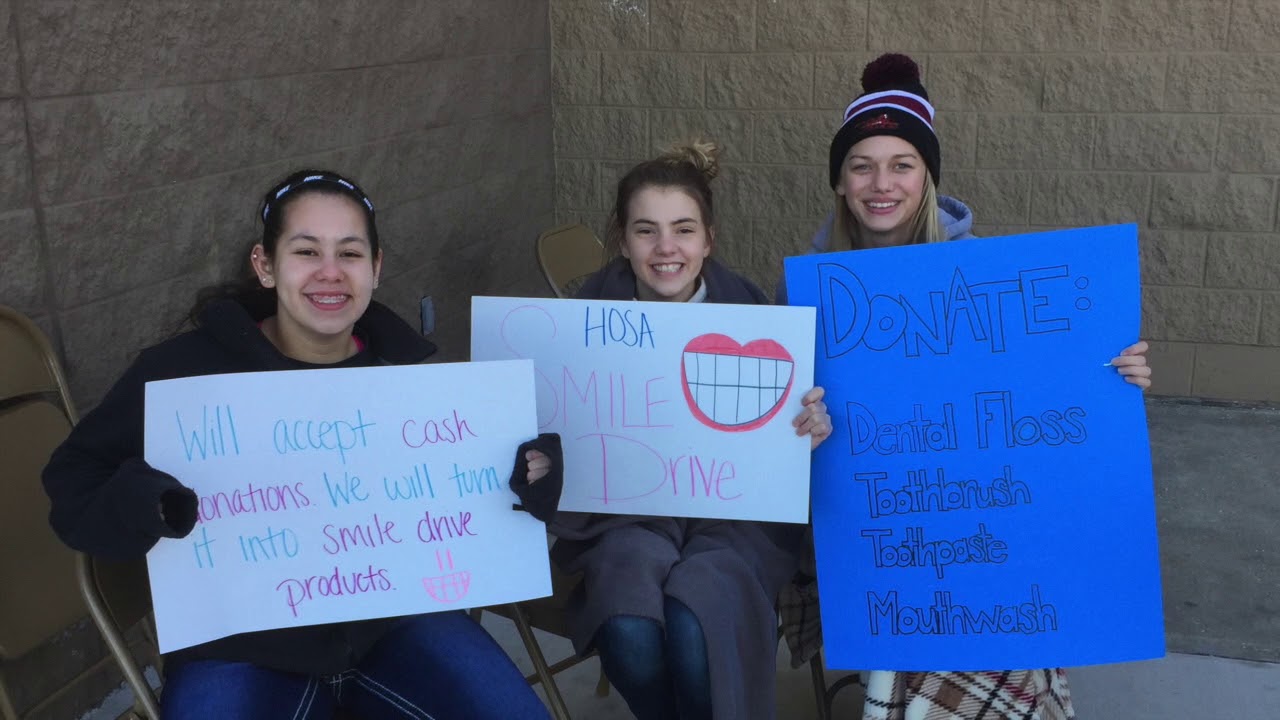 Will accept cash
donations. We will turn
it into smile drive
products.
HOSA
SMILE
Drive
DONATE:
Dental Floss
Toothbrush
Toothpaste
Mouthwash